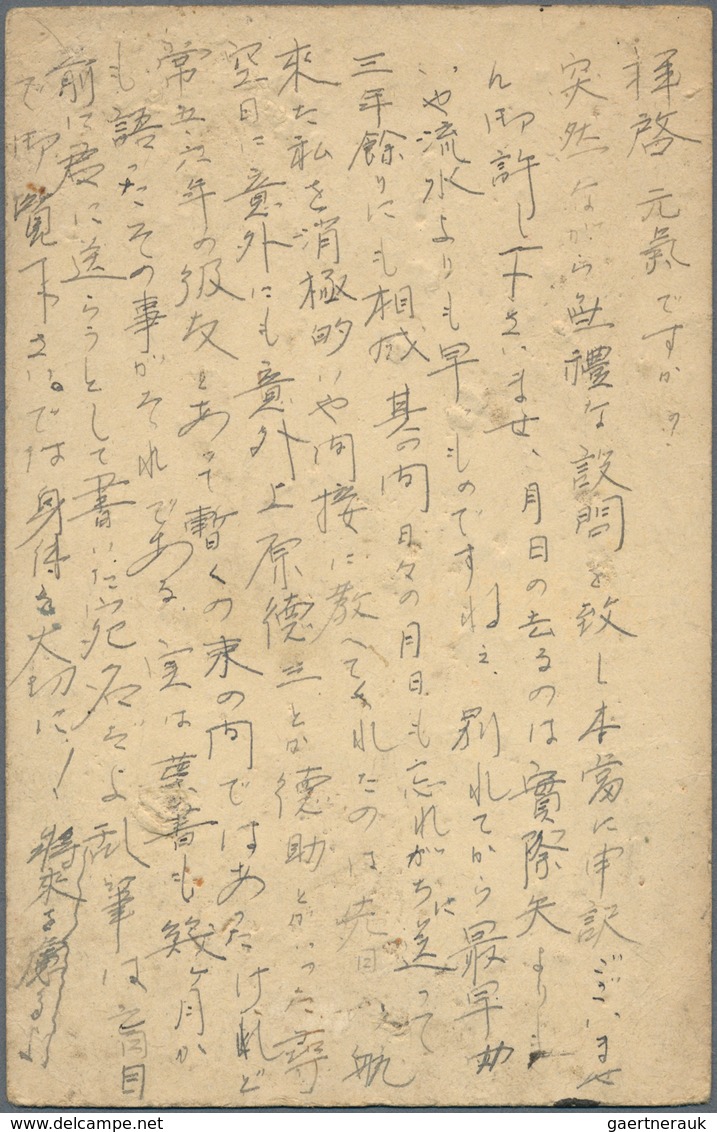 拝啓 元氣ですか?
突然ながら無禮な設問を致し本当に申訳ございませ
ん御許し下さいませ、月日の去るのは實際矢よりも
いや流水よりも早いものですねえ、別れてから最早
三年餘りにも相成 其の間日々の月日も忘れがちに送って
來た私を消極的いや間接に教へてくれたのは先日
空目に意外にも意外上原德三とか德助とかいった尋
常五、六年の級友とあって暫くの束の間ではあったけれど
も語ったその事がそれである、実は葉書も幾ヶ月か
前に君に送らうとして書いた宛名だよ乱筆は盲目
で御覧下さい。では身体を大切に!
gaertnerauk